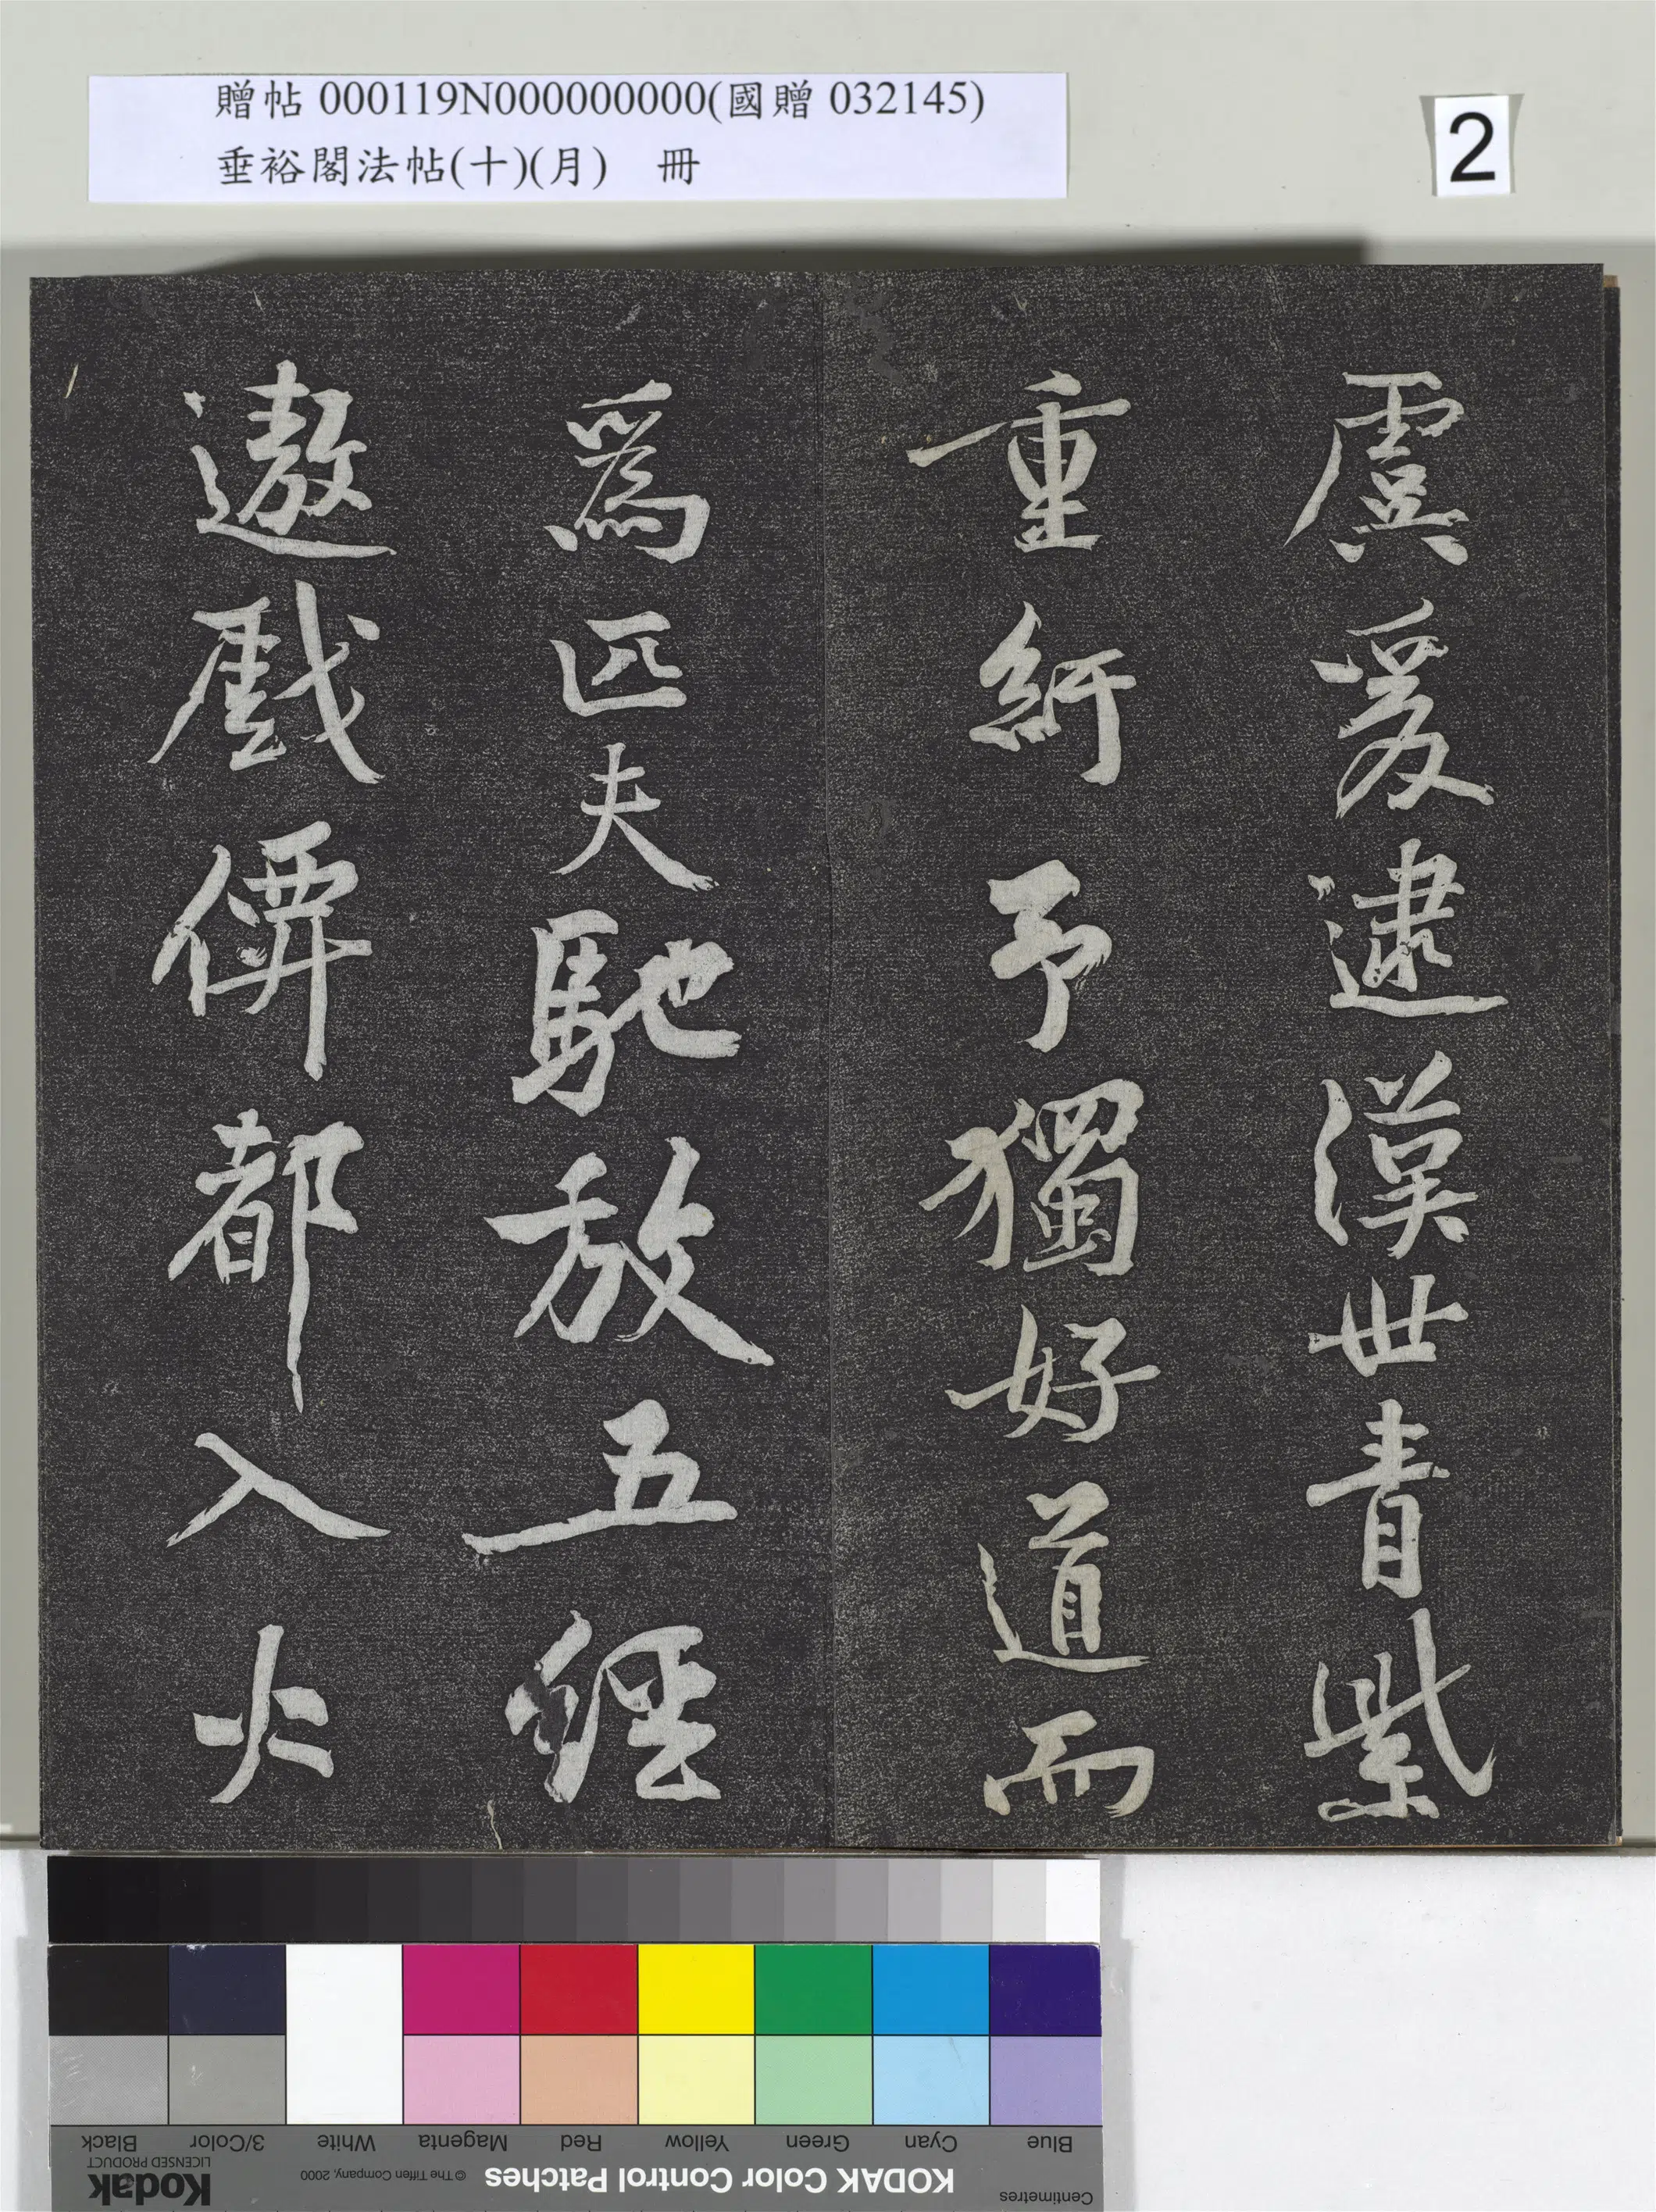 贈帖 000119N000000000(國贈 032145)
垂裕閣法帖(十)(月) 冊
2
虞爰逮漢世青紫
重紆予獨好道而
為匹夫馳放五經
遨戲僻都入火
Blue
Cyan
Green
Yellow
Red
Magenta
White
3/Color
Black
Centimetres
KODAK Color Control Patches
© The Tiffen Company, 2000
Kodak
LICENSED PRODUCT